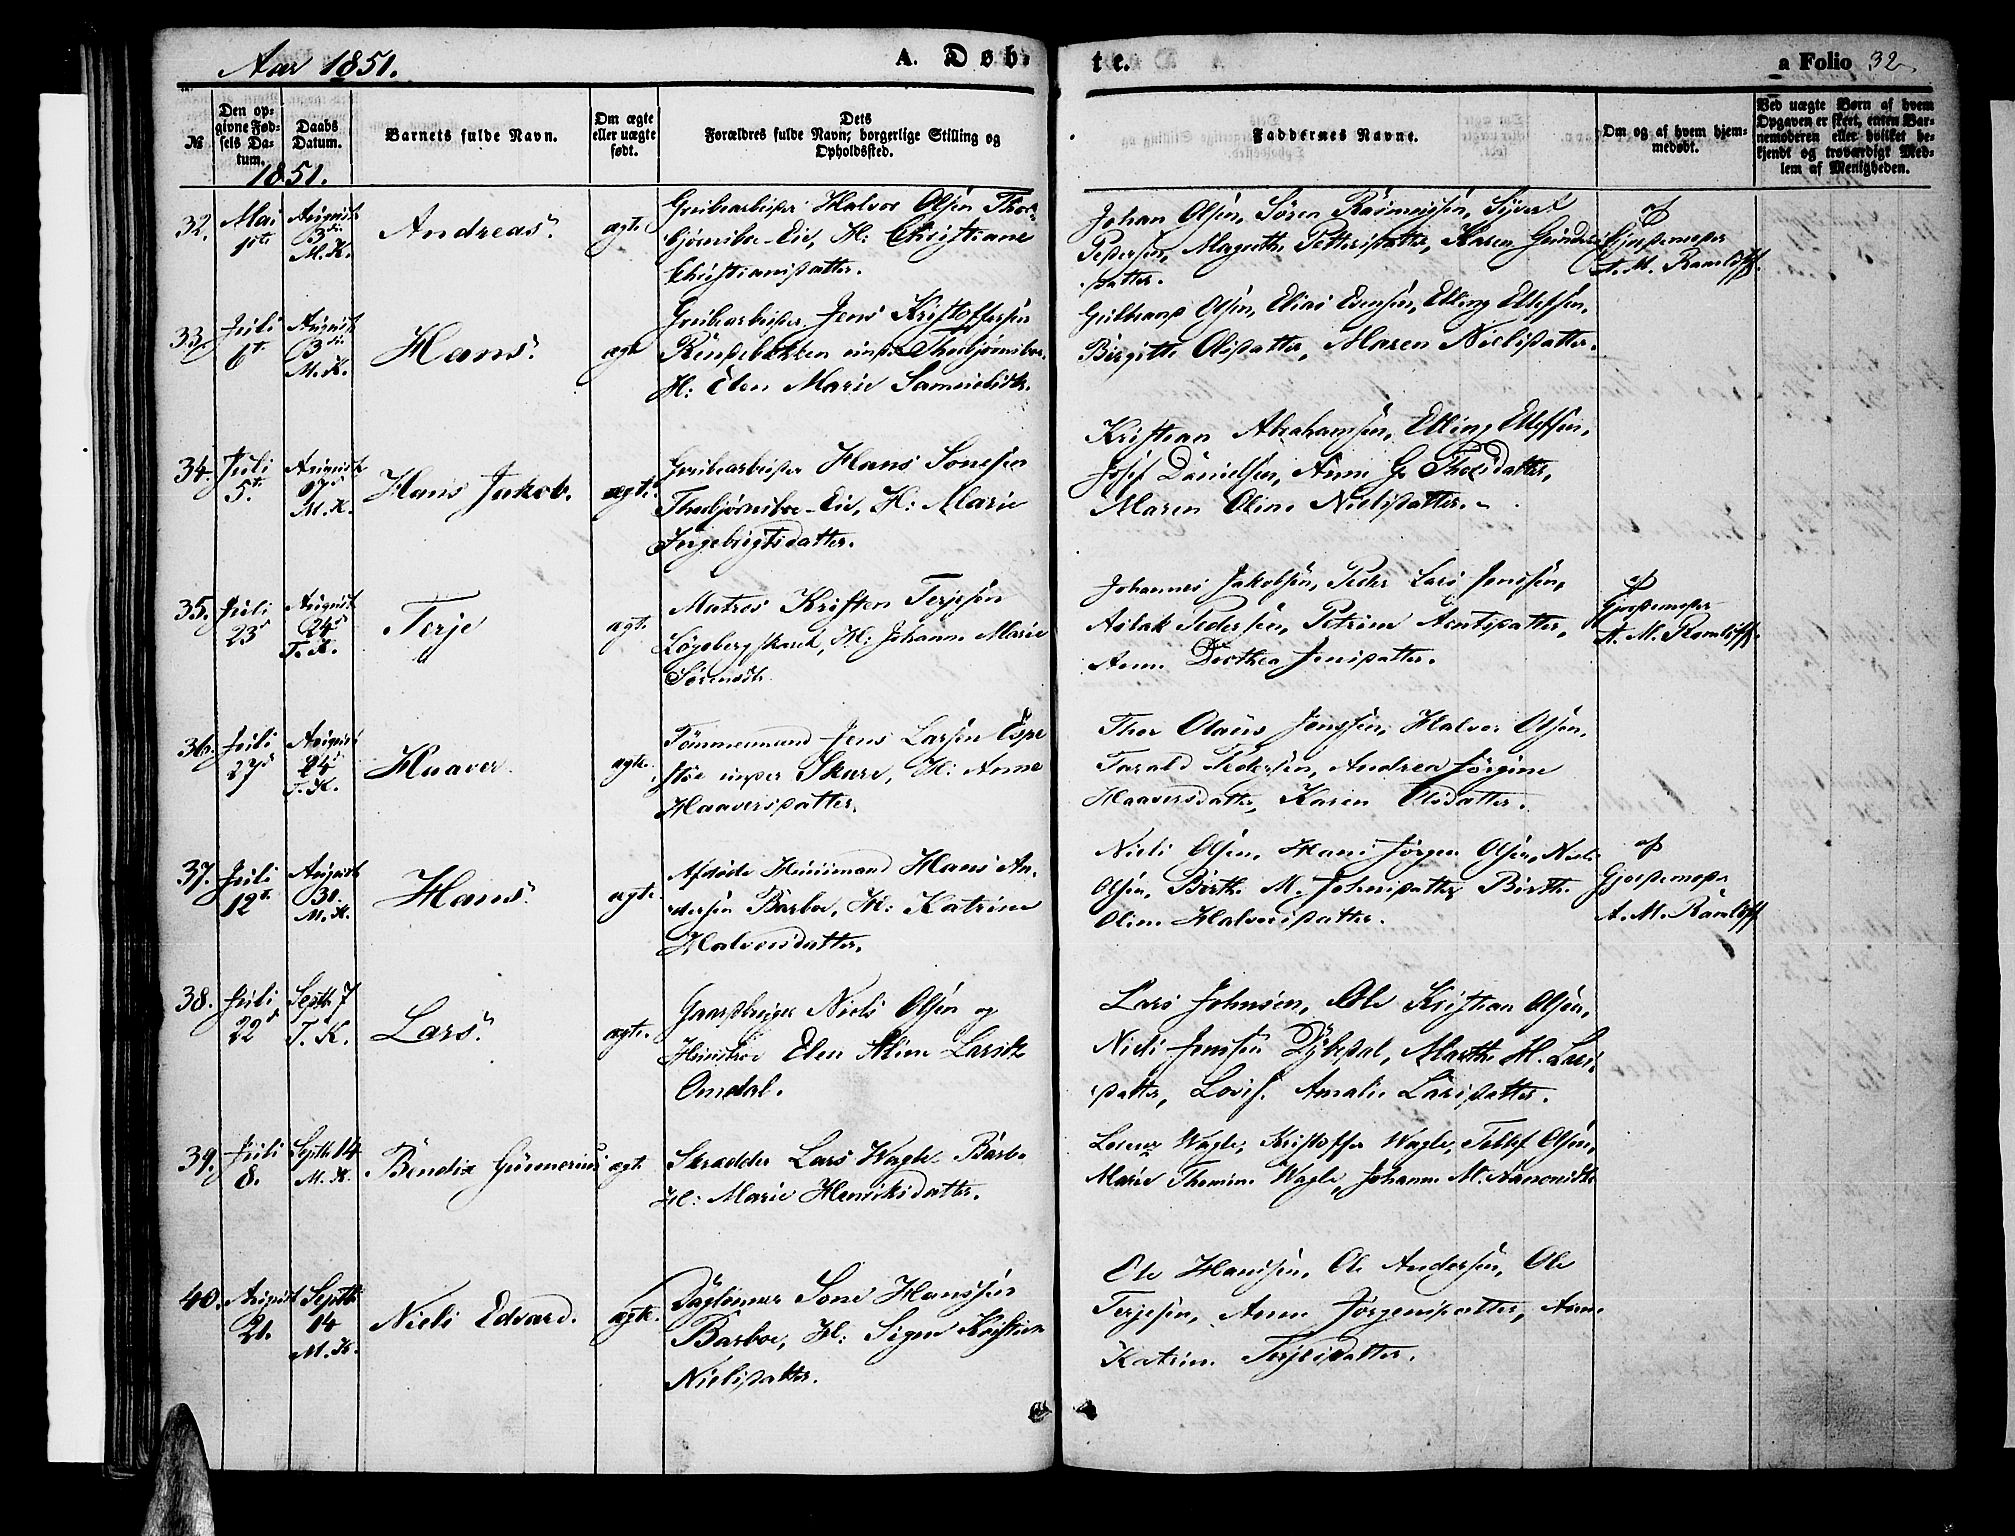 Aar 1851.
A. Døb-
te.
a Folio 32.
№
Den op-
givne Fød-
sels Da-
tum.
Daabs
Datum.
Barnets fulde Navn.
Om ægte
eller uægte
født.
Dets
Forældres fulde Navn, borgerlige Stilling og
Opholdssted.
Faddernes Navne.
Om og af hvem hjem-
medøbt.
Ved uægte Børn af hvem
Opgaven er skeet, enten Bar-
nemoderen eller hvilket be-
kjendt og troværdigt Med-
lem af Menigheden.
1851.
32.
Mai
1ste
August
3die
M. K.
Andreas
ægte
Grubearbeider Halvor Olsen Thor-
bjørnsboe Eie, H: Christiane
Christiansdatter.
Johan Olsen, Sören Rasmussen, Syvert
Pedersen, Magrethe Pettersdatter, Karen Gunders
datter.
af
Gjordemoder
A. M. Ramløff.
33.
Juli
6t
August
3die
M. K.
Hans
ægte
Grubearbeider Jens Kristoffersen
under Thorbjørnsboe.
H: Elen Marie Samuelsdt.
Olsen, Elias Evensen, Elling Ellefsen,
Birgitte Olsdatter, Maren Nielsdatter.
34.
Juli
5t
August
M. K.
Hans Jakob.
ægte.
Grubearbeider Hans Sonesen
Thorbjørnsboe Eie, H: Marie
Ingebrigtsdatter.
Kristian Abrahamsen, Elling Ellefsen,
Josef Danielsen, Anne G. Tholsdatter,
Maren Oline Nielsdatter.
35.
Juli
23d
August
24d
T. K.
Terje
ægte.
Matros Kristen Terjesen
Løgebergskaret, H: Johanne Marie
Sörensdt.
Johannes Jakobsen, Peder Lars Jenssen,
Aslak Pedersen, Petrine Aentsdatter,
Anne Dorthea Jensdatter.
af
Gjordemoder
A. M. Ramløff.
36.
Juli
27d
August
24d
T. K.
Haaver
ægte.
Tömmermand Jens Larsen Espe
støe under Skare, H: Anne
Haaversdatter.
Thor Olaus Jenssen, Halvor Olsen,
Tarald Pedersen, Andrea Jörgine
Haaversdatter, Karen Olsdatter.
37.
Juli
12t
August
31.
M. K.
Hans
ægte.
Afdøde Huusmand Hans An-
dersen Barboe, H: Katrine
Halvorsdatter.
Niels Olsen, Hans Jörgen Olsen, Niels
Olsen, Birthe M. Johnsdatter, Birthe
Oline Halvorsdatter.
af
Gjordemoder
A. M. Ramløff.
38.
Juli
22d
Septbr 7
T. K.
Lars
ægte.
Gaardbruger Niels Olsen og
Hustroe Elen Aline Larsdt
Omdal.
Lars Johnsen, Ole Kristian Olsen,
Niels Jenssen Dybedal, Marthe M. Lars-
datter, Lovise Amalie Larsdatter.
39.
Juli
8.
Septbr 14
M. K.
Bendix Gunnerius
ægte
Skrædder Lars Wagle Barbo
H: Marie Henriksdatter.
Lorenz Wagle, Kristoffer Wagle, Tellef Olsen,
Marie Thomine Wagle, Johanne M. Aanonsdt.
40.
August
21.
Septbr
14
M. K.
Niels Edvard.
ægte.
Daglönner Sone Hanssen
Barboe, H: Signe Kristine
Nielsdatter.
Ole Hanssen, Ole Andersen, Ole
Terjesen, Anne Jörgensdatter, Anne
Katrine Terjesdatter.